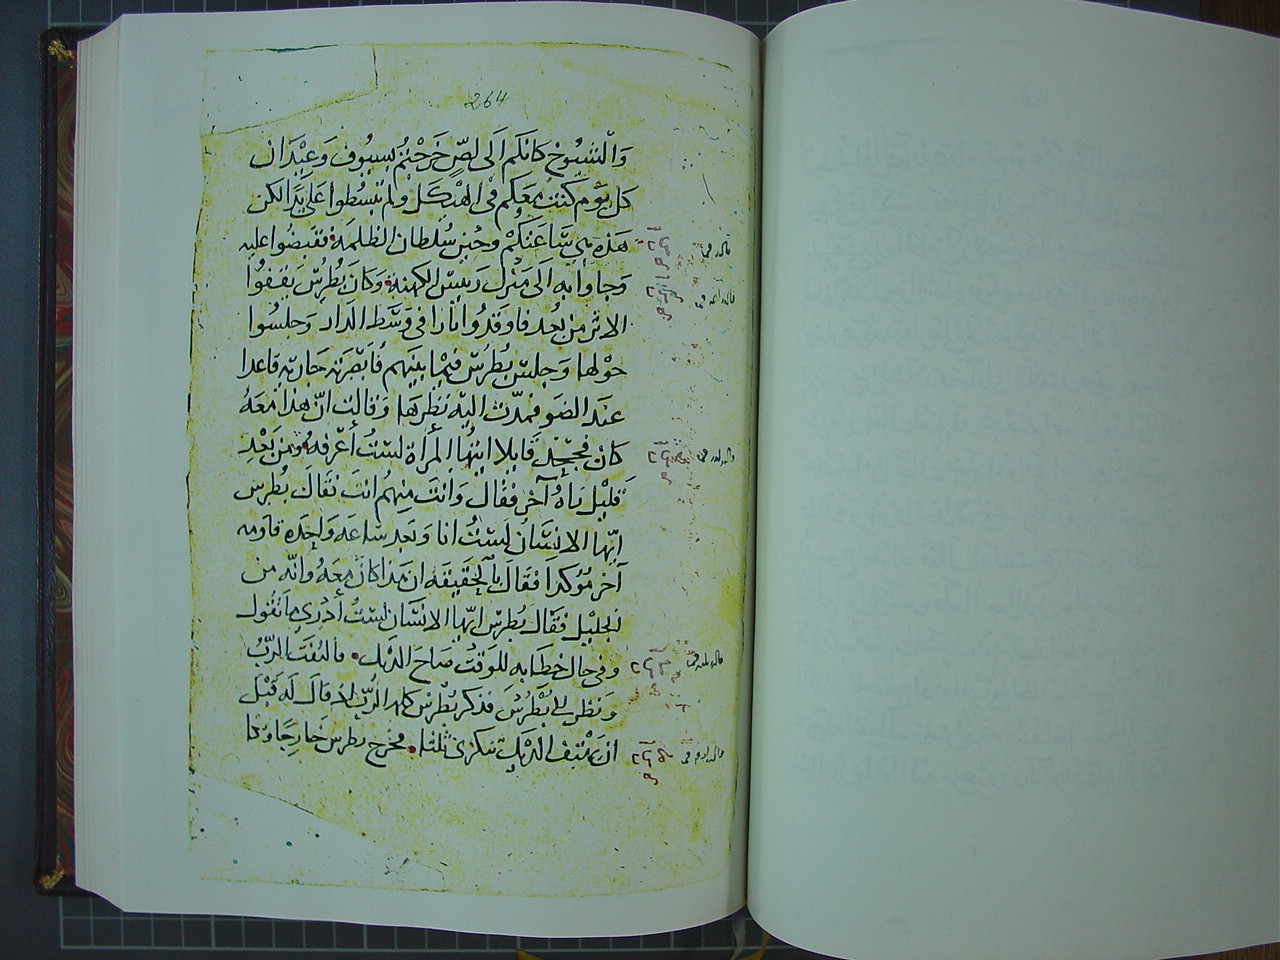 264
والشيوخ كانكم الى لصٍّ خرجتم بسيوف وعيدان
كل يوم كنت معكم في الهيكل ولم تبسطوا علي يدًا لكن
هذه هي ساعتكم وحين سلطان الظلمة فقبضوا عليه
وجاوا به الى منزل رييس الكهنة وكان بطرس يقفوا
الاثر من بُعد فاوقدوا نارا في وسط الدار وجلسوا
حولها وجلس بطرس فيما بينهم فابصرته جارية قاعدا
عند الضو فمدت اليه نظرها وقالت انّ هذا معهُ
كان فجحد قايلا ايتها المرأة لستُ اعرفه ومن بَعْدِ
قليل راه آخر فقال وانت منهم انت فقال بطرس
ايّها الانسان لستُ انا وبعد ساعه واحده قاومه
آخر مؤكدا فقال بالحقيقه ان هذا كان معهُ وانّه من
الجليل فقال بطرس ايّها الانسان لستُ أدري ما تقول
وفي حال خطابه للوقت صاح الديك فالتفت الربّ
ونظر الى بطرس فذكر بطرس كلمة الربّ اذ قال له قبل
ان يهتف الديك تنكرني ثلثا فخرج بطرس خارجًا وبكا